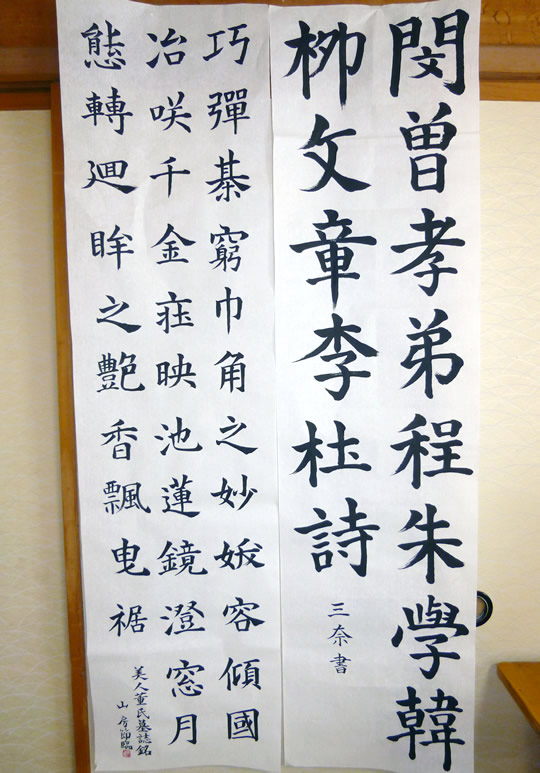 閔曽孝弟程朱學韓
栁文章李杜詩
三奈書
巧彈棊窮巾角之妙媛容傾國
冶咲千金莊映池蓮鏡澄窓月
態轉廻眸之艶香飄曳裾
美人董氏墓誌銘
山房節臨